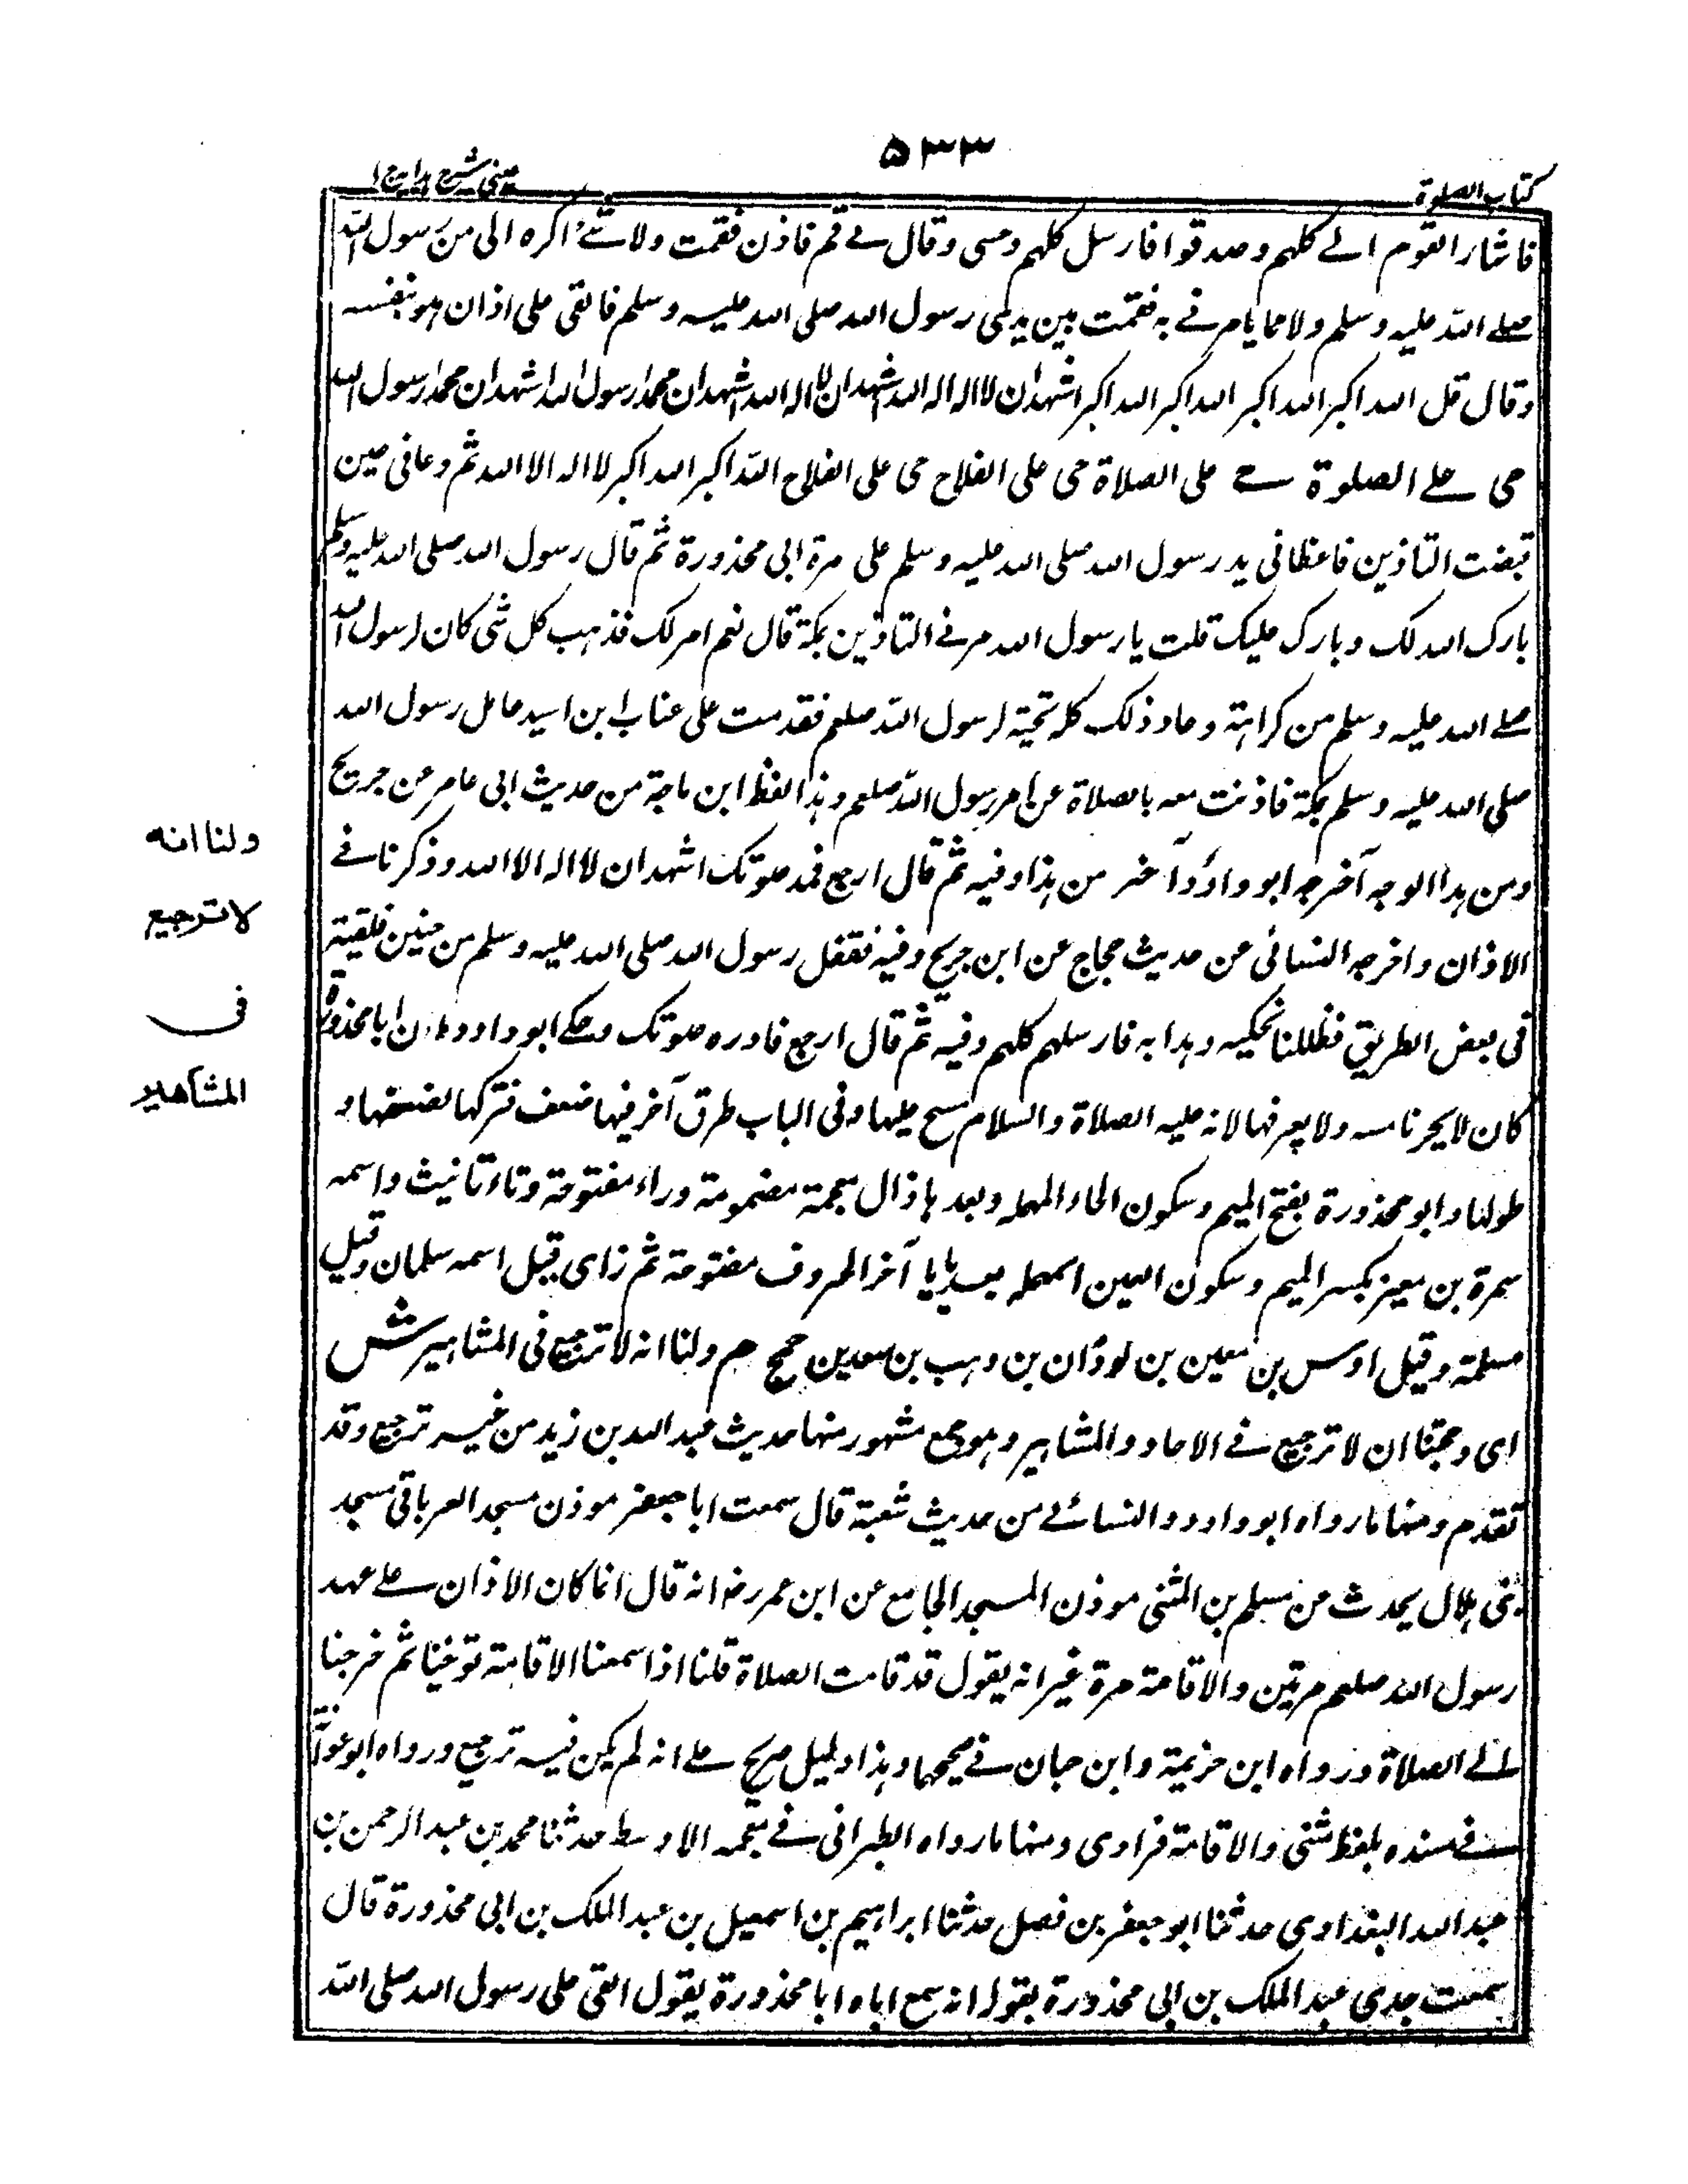 ۵۳۳
كتاب الصلوة
عينى شرح هداية ج ا
فاشار القوم الے كلهم وصدقوا فارسل كلهم وحسى وقال لے قم فاذن فقمت ولا شئ اكره الى من رسول الله
صلے الله عليه وسلم ولا مما يامرنے به فقمت بين يدى رسول الله صلى الله عليه وسلم فالقى على اذان هو بنفسه
وقال قل الله اكبر الله اكبر الله اكبر الله اكبر اشهد ان لا اله الا الله اشهد ان لا اله الا الله اشهد ان محمدا رسول الله اشهد ان محمدا رسول الله
حى علے الصلوة حے على الصلاة حى على الفلاح حى على الفلاح الله اكبر الله اكبر لا اله الا الله ثم دعانى حين
قبضت التاذين فاعطانى يد رسول الله صلى الله عليه وسلم على مرة ابى محذورة ثم قال رسول الله صلى الله عليه وسلم
بارك الله لك وبارك عليك قلت يا رسول الله مرنے التاذين بمكة قال نعم امر لك فذهب كل شى كان لرسول الله
صلے الله عليه وسلم من كراهة وعاد ذلك كله تحية لرسول الله صلعم فقدمت على عتاب ابن اسيد عامل رسول الله
صلى الله عليه وسلم بمكة فاذنت معه بالصلاة عن امر رسول الله صلعم وهذا لفظ ابن ماجة من حديث ابى عامر عن جريج
ومن هذا الوجه آخرجه ابو داؤد آخر من هذا وفيه ثم قال ارجع فمد صوتك اشهد ان لا اله الا الله وذكرنا فے
الاذان واخرجه النسائى عن حديث حجاج عن ابن جريج وفيه فقفل رسول الله صلى الله عليه وسلم من حنين فلقيته
فى بعض الطريق فظللنا نحكيه وهدا به فارسلهم كلهم وفيه ثم قال ارجع فاورده صوتك وحكے ابو داود ان ابا محذورة
كان لا يجز ناصيه ولا يعرفها لانه عليه الصلاة والسلام مسح عليها وفى الباب طرق آخر فيها ضعف فتركها لضعفها و
طولها وابو محذورة بفتح الميم وسكون الحاء المهملة وبعدها ذال معجمة مضمومة وراء مفتوحة وتاء تانيث واسمه
سمرة بن معيز بكسر الميم وسكون العين المهملة بعدها يا آخر الحروف مفتوحة ثم زاى قيل اسمه سلمان وقيل
مسلمة وقيل اوس بن معين بن لوذان بن وهب بن سعد بن جمح م ولنا انه لا ترجيع فى المشاهير ش
اى وحجتنا ان لا ترجيع فے الاحاد والمشاهير وهو جمع مشهور منها حديث عبد الله بن زيد من غير ترجيع وقد
تقدم ومنها ما رواه ابو داود والنسائے من حديث شعبة قال سمعت ابا جعفر موذن مسجد العرباقى مسجد
بنى هلال يحدث من مسلم بن المثنى موذن المسجد الجامع عن ابن عمر رض انه قال انما كان الاذان علے عهد
رسول الله صلعم مرتين والاقامة مرة غير انه يقول قد قامت الصلاة قلنا اذا سمعنا الاقامة توضينا ثم خرجنا
الے الصلاة ورواه ابن خزيمة وابن حبان فے صحيحهما وهذا دليل صريح علے انه لم يكن فيه ترجيع ورواه ابو عوانة
فے مسنده بلفظ مثنى والاقامة فرادى ومنها ما رواه الطبرانى فے معجمه الاوسط حدثنا محمد بن عبد الرحمن بن
عبد الله البغدادى حدثنا ابو جعفر بن فصل حدثنا ابراهيم بن اسمعيل بن عبد الملك بن ابى محذورة قال
سمعت جدى عبد الملك بن ابى محذورة يقول انه سمع اباه ابا محذورة يقول القى على رسول الله صلى الله
ولنا انه
لا ترجيع
فى
المشاهير